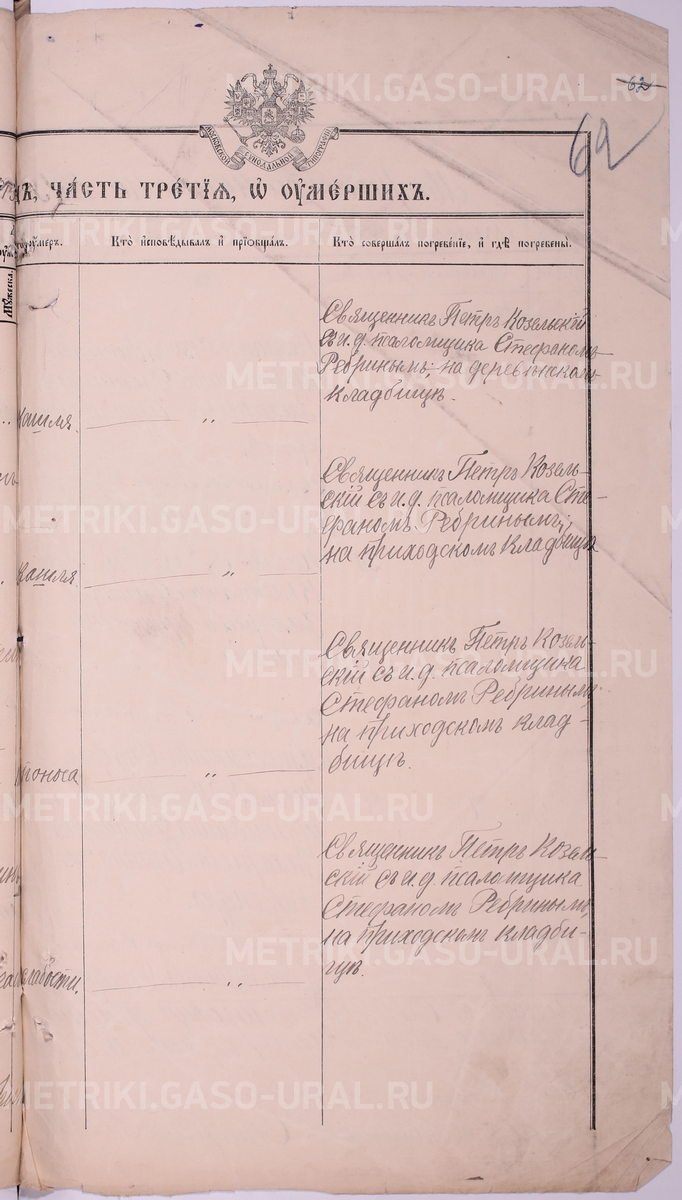 METRIKI.GASO-URAL.RU
62
62
МОСКОВСКОЙ СѴНОДАЛЬНОЙ ТИПОГРАФІИ
ЧА́СТЬ ТРЕ́ТЇѦ, Ѡ҆ ОУ҆МЕ́РШИХЪ.
Кто̀ и҆сповѣ́дывалъ и҆ прїѻбща́лъ.
Кто̀ соверша́лъ погребе́нїе, и҆ гдѣ̀ погребены̀.
Мꙋ́жеска.
Священникъ Петръ Козельскій
съ и. д. псаломщика Стефаномъ
Ребринымъ; на деревенскомъ
кладбищѣ.
кашля. — „ —
Священникъ Петръ Козель-
скій съ и. д. псаломщика Сте-
фаномъ Ребринымъ;
на приходскомъ кладбищѣ
кашля. — „ —
Священникъ Петръ Козель-
скій съ и. д. псаломщика
Стефаномъ Ребринымъ
на приходскомъ клад-
бищѣ.
поноса — „ —
Священникъ Петръ Козель-
скій съ и. д. псаломщика
Стефаномъ Ребринымъ,
на приходскомъ кладби-
щѣ.
слабости. — „ —